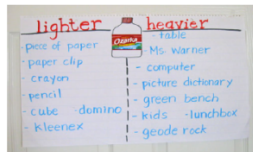 lighter
- piece of paper
- paper clip
- crayon
- pencil
- cube - domino
- kleenex
heavier
- table
- Ms. Warner
- computer
- picture dictionary
- green bench
- kids - lunchbox
- geode rock